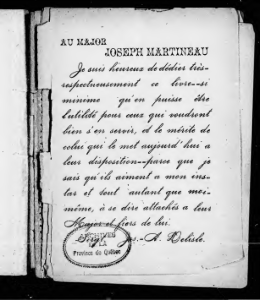 AU MAJOR
JOSEPH MARTINEAU
Je suis heureux de dédier très-
respectueusement ce livre--si
minime qu'en puisse être
l'utilité pour ceux qui voudront
bien s'en servir, et le mérite de
celui qui le met aujourd'hui à
leur disposition--parce que je
sais qu'ils aiment à mon ins-
tar et tout autant que moi-
même, à se dire attachés à leur
Major et fiers de lui.
Sergt. Jos.-A. Delisle.
ARCHIVES
DE LA
Province de Québec